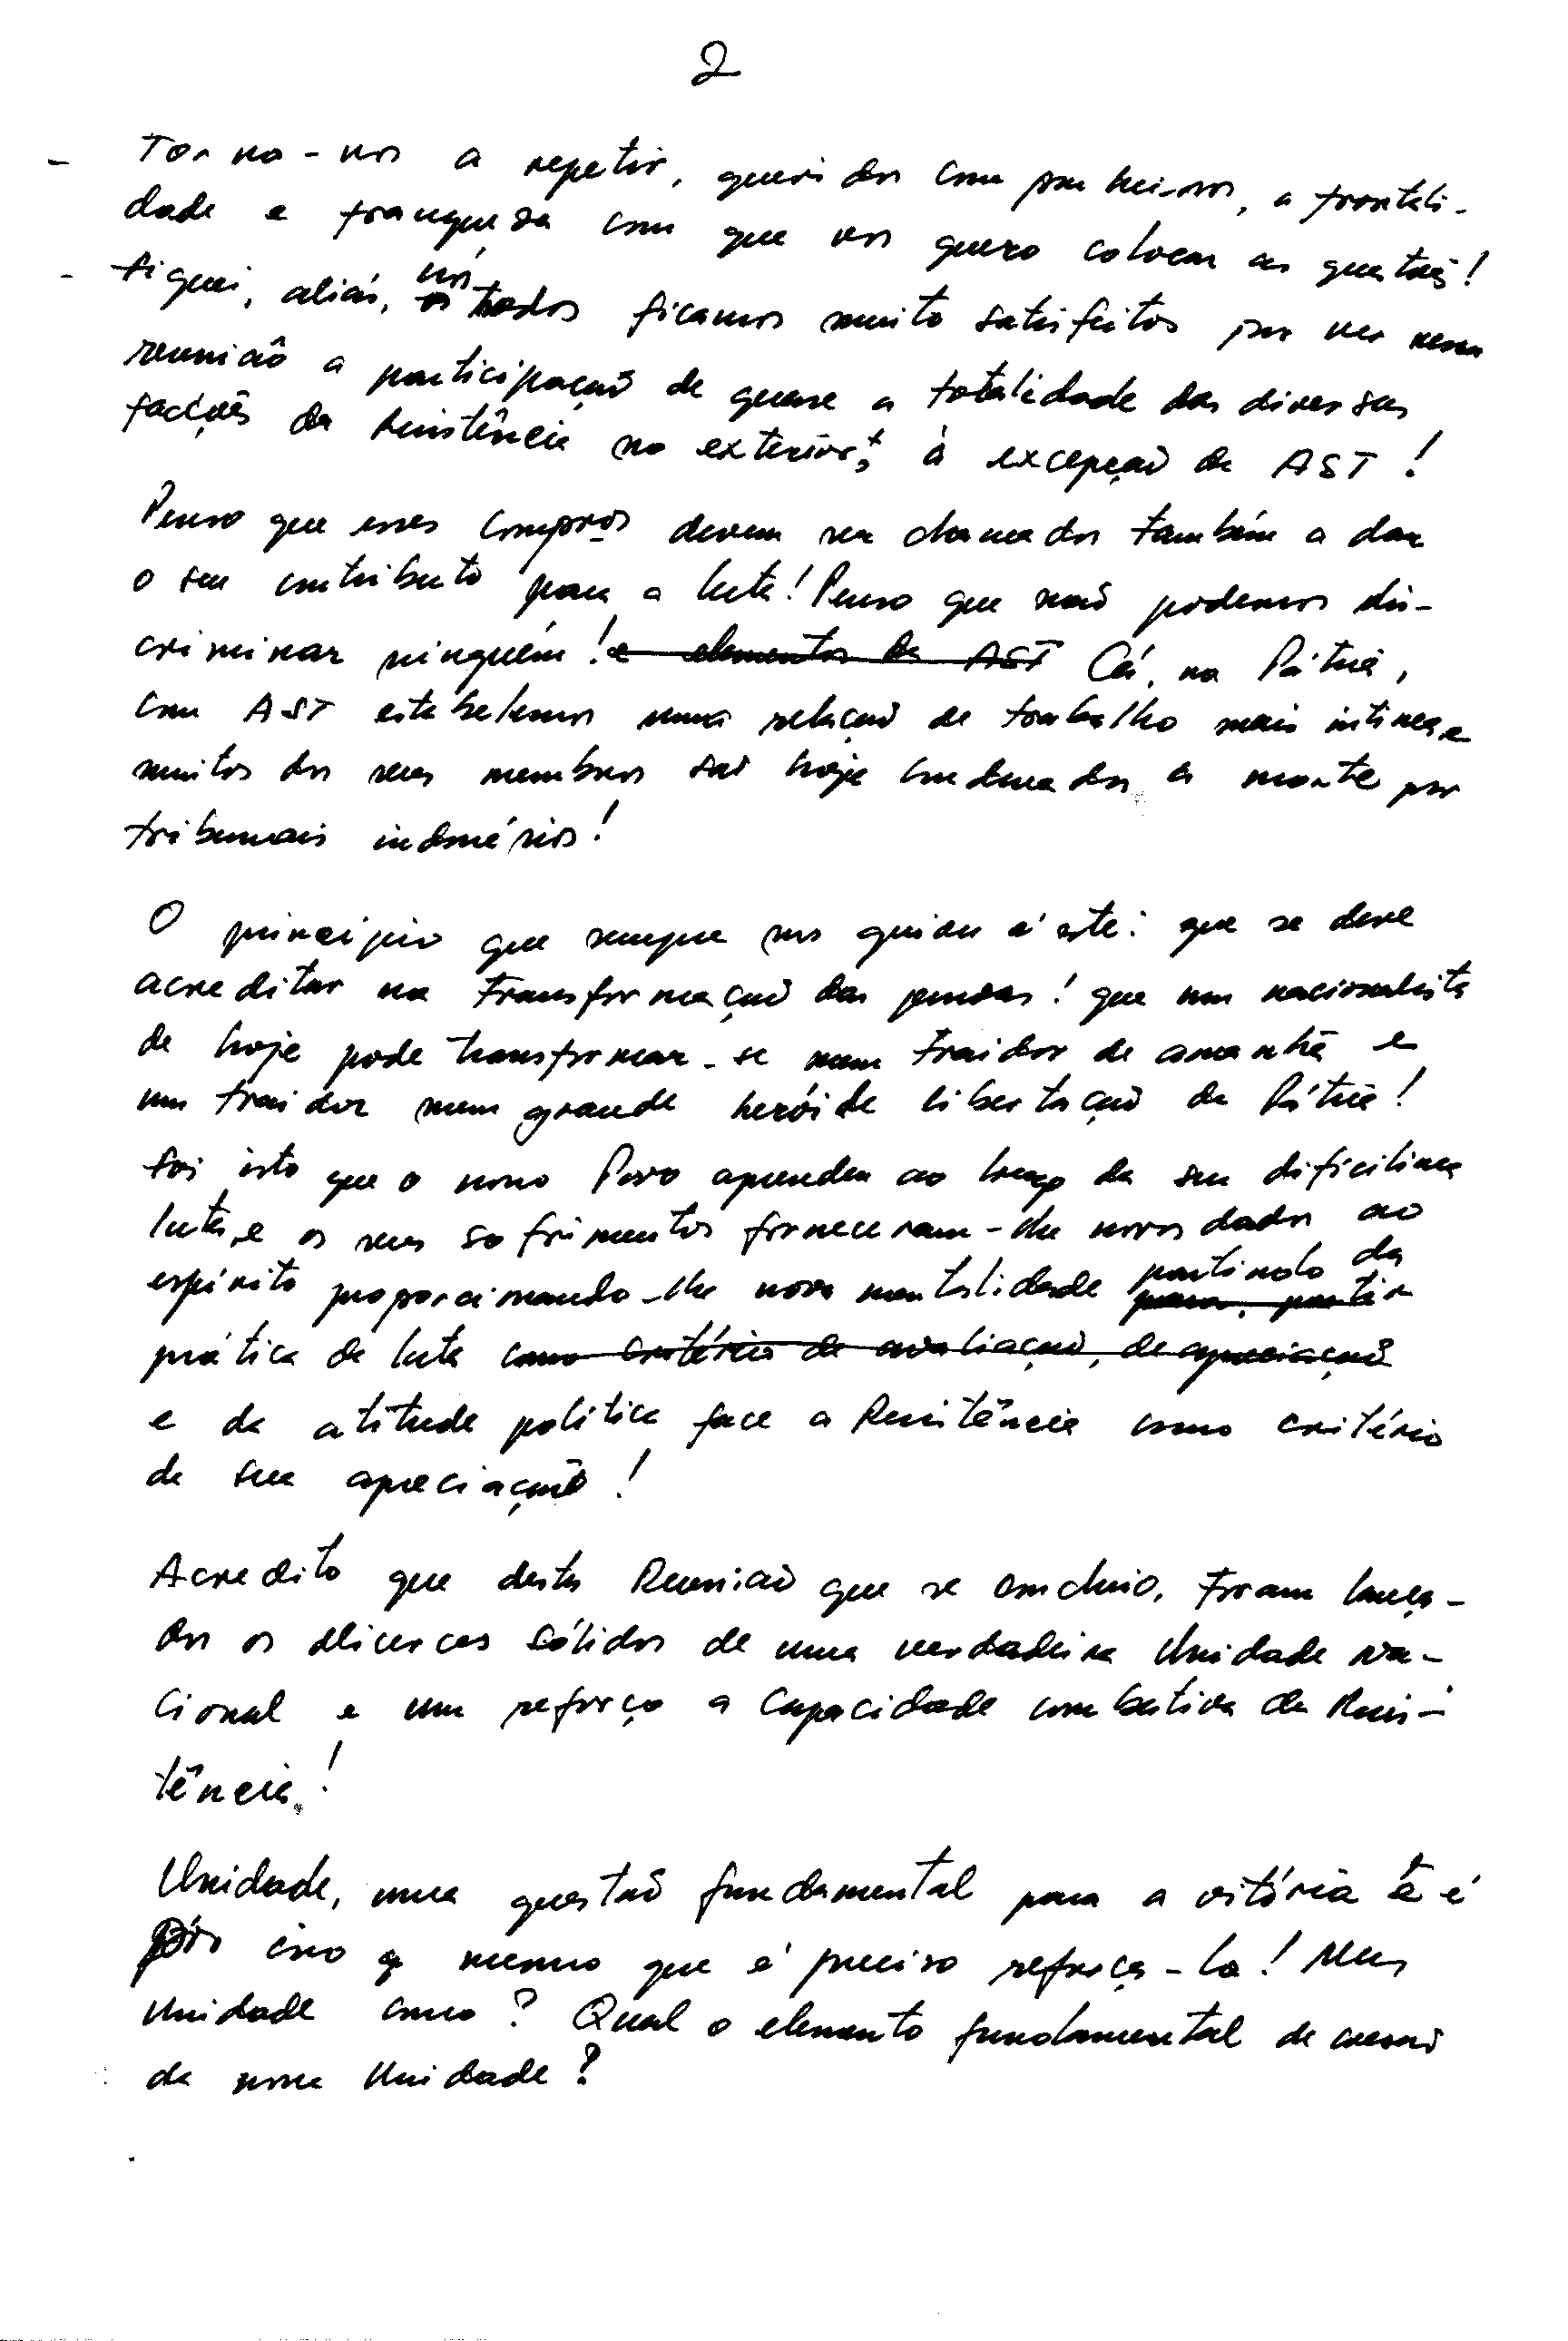 2
- Torno-vos a repetir, queridos companheiros, a frontali-
dade e franqueza com que vos quero colocar as questões!
- Fiquei, aliás, nós todos ficamos muito satisfeitos por ver nessa
reunião a participação de quase a totalidade das diversas
facções da Resistência no exterior, à excepção da AST!
Penso que esses compros devem ser chamados também a dar
o seu contributo para a luta! Penso que não podemos dis-
criminar ninguém! e elementos da AST Cá, na Pátria,
com AST estabelemos uma relação de trabalho mais íntima e
muitos dos seus membros são hoje condenados à morte por
tribunais indonésios!
O princípio que sempre nos guiou é este: que se deve
acreditar na transformação das pessoas! que um nacionalista
de hoje pode transformar-se num traidor de amanhã e
um traidor num grande herói de libertação da Pátria!
Foi isto que o nosso Povo aprendeu ao longo da sua dificílima
luta, e os seus sofrimentos forneceram-lhe novos dados ao
espírito proporcionando-lhe nova mentalidade partindo da
para, partir
prática da luta como critério de avaliação, de apreciação
e da atitude política face a Resistência como critério
de sua apreciação!
Acredito que desta Reunião que se concluio, foram lança-
dos os alicerces sólidos de uma verdadeira Unidade Na-
cional e um reforço a capacidade combativa da Resis-
tência!
Unidade, uma questão fundamental para a vitória é
por isso mesmo que é preciso reforça-la! Mas
Unidade como? Qual o elemento fundamental de coesão
da nossa Unidade?